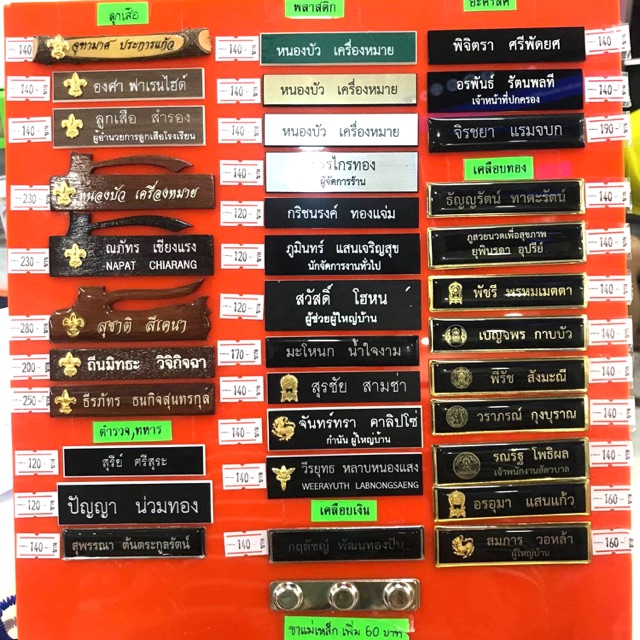 ลูกเสือ
140
จุฑามาศ ประการแก้ว
140
องศา ฟาเรนไฮต์
140
ลูกเสือ สำรอง
ผู้อำนวยการลูกเสือโรงเรียน
230
หนองบัว เครื่องหมาย
230
ณภัทร เชียงแรง
NAPAT CHIARANG
280
สุชาติ สีเคนา
200
ถีนมิทธะ วิจิกิจฉา
250
ธีรภัทร ธนกิจสุนทรกุล
ตำรวจ,ทหาร
120
สุรีย์ ศรีสุระ
120
ปัญญา น่วมทอง
140
สุพรรณา ต้นตระกูลรัตน์
พลาสติก
140
หนองบัว เครื่องหมาย
140
หนองบัว เครื่องหมาย
140
หนองบัว เครื่องหมาย
140
ผู้จัดการร้าน
120
กริชนรงค์ ทองแจ่ม
120
ภูมินทร์ แสนเจริญสุข
นักจัดการงานทั่วไป
120
สวัสดิ์ โฮหน
ผู้ช่วยผู้ใหญ่บ้าน
170
มะโหนก น้ำใจงาม
140
สุรชัย สามช่า
140
จันทร์ทรา คาลิปโซ่
กำนัน ผู้ใหญ่บ้าน
140
วีรยุทธ หลาบหนองแสง
WEERAYUTH LABNONGSAENG
เคลือบเงิน
140
กฤตัชญ์ พัฒนทองปัน
ขาแม่เหล็ก เพิ่ม 60 บาท
140
พิจิตรา ศรีพัดยศ
140
อรพันธ์ รัตนพลที
เจ้าหน้าที่ปกครอง
190
จิรชยา แรมจบก
เคลือบทอง
140
ธัญญรัตน์ ทาตะรัตน์
140
ภูสวยนวดเพื่อสุขภาพ
ยุพินรดา อุปรีย์
140
พัชรี พรหมเมตตา
140
เบญจพร กาบบัว
140
พีรัช สังมะณี
140
วราภรณ์ กุงบุราณ
140
รณรัฐ โพธิผล
เจ้าพนักงานสัตวบาล
160
อรอุมา แสนแก้ว
160
สมภาร วอหล้า
ผู้ใหญ่บ้าน